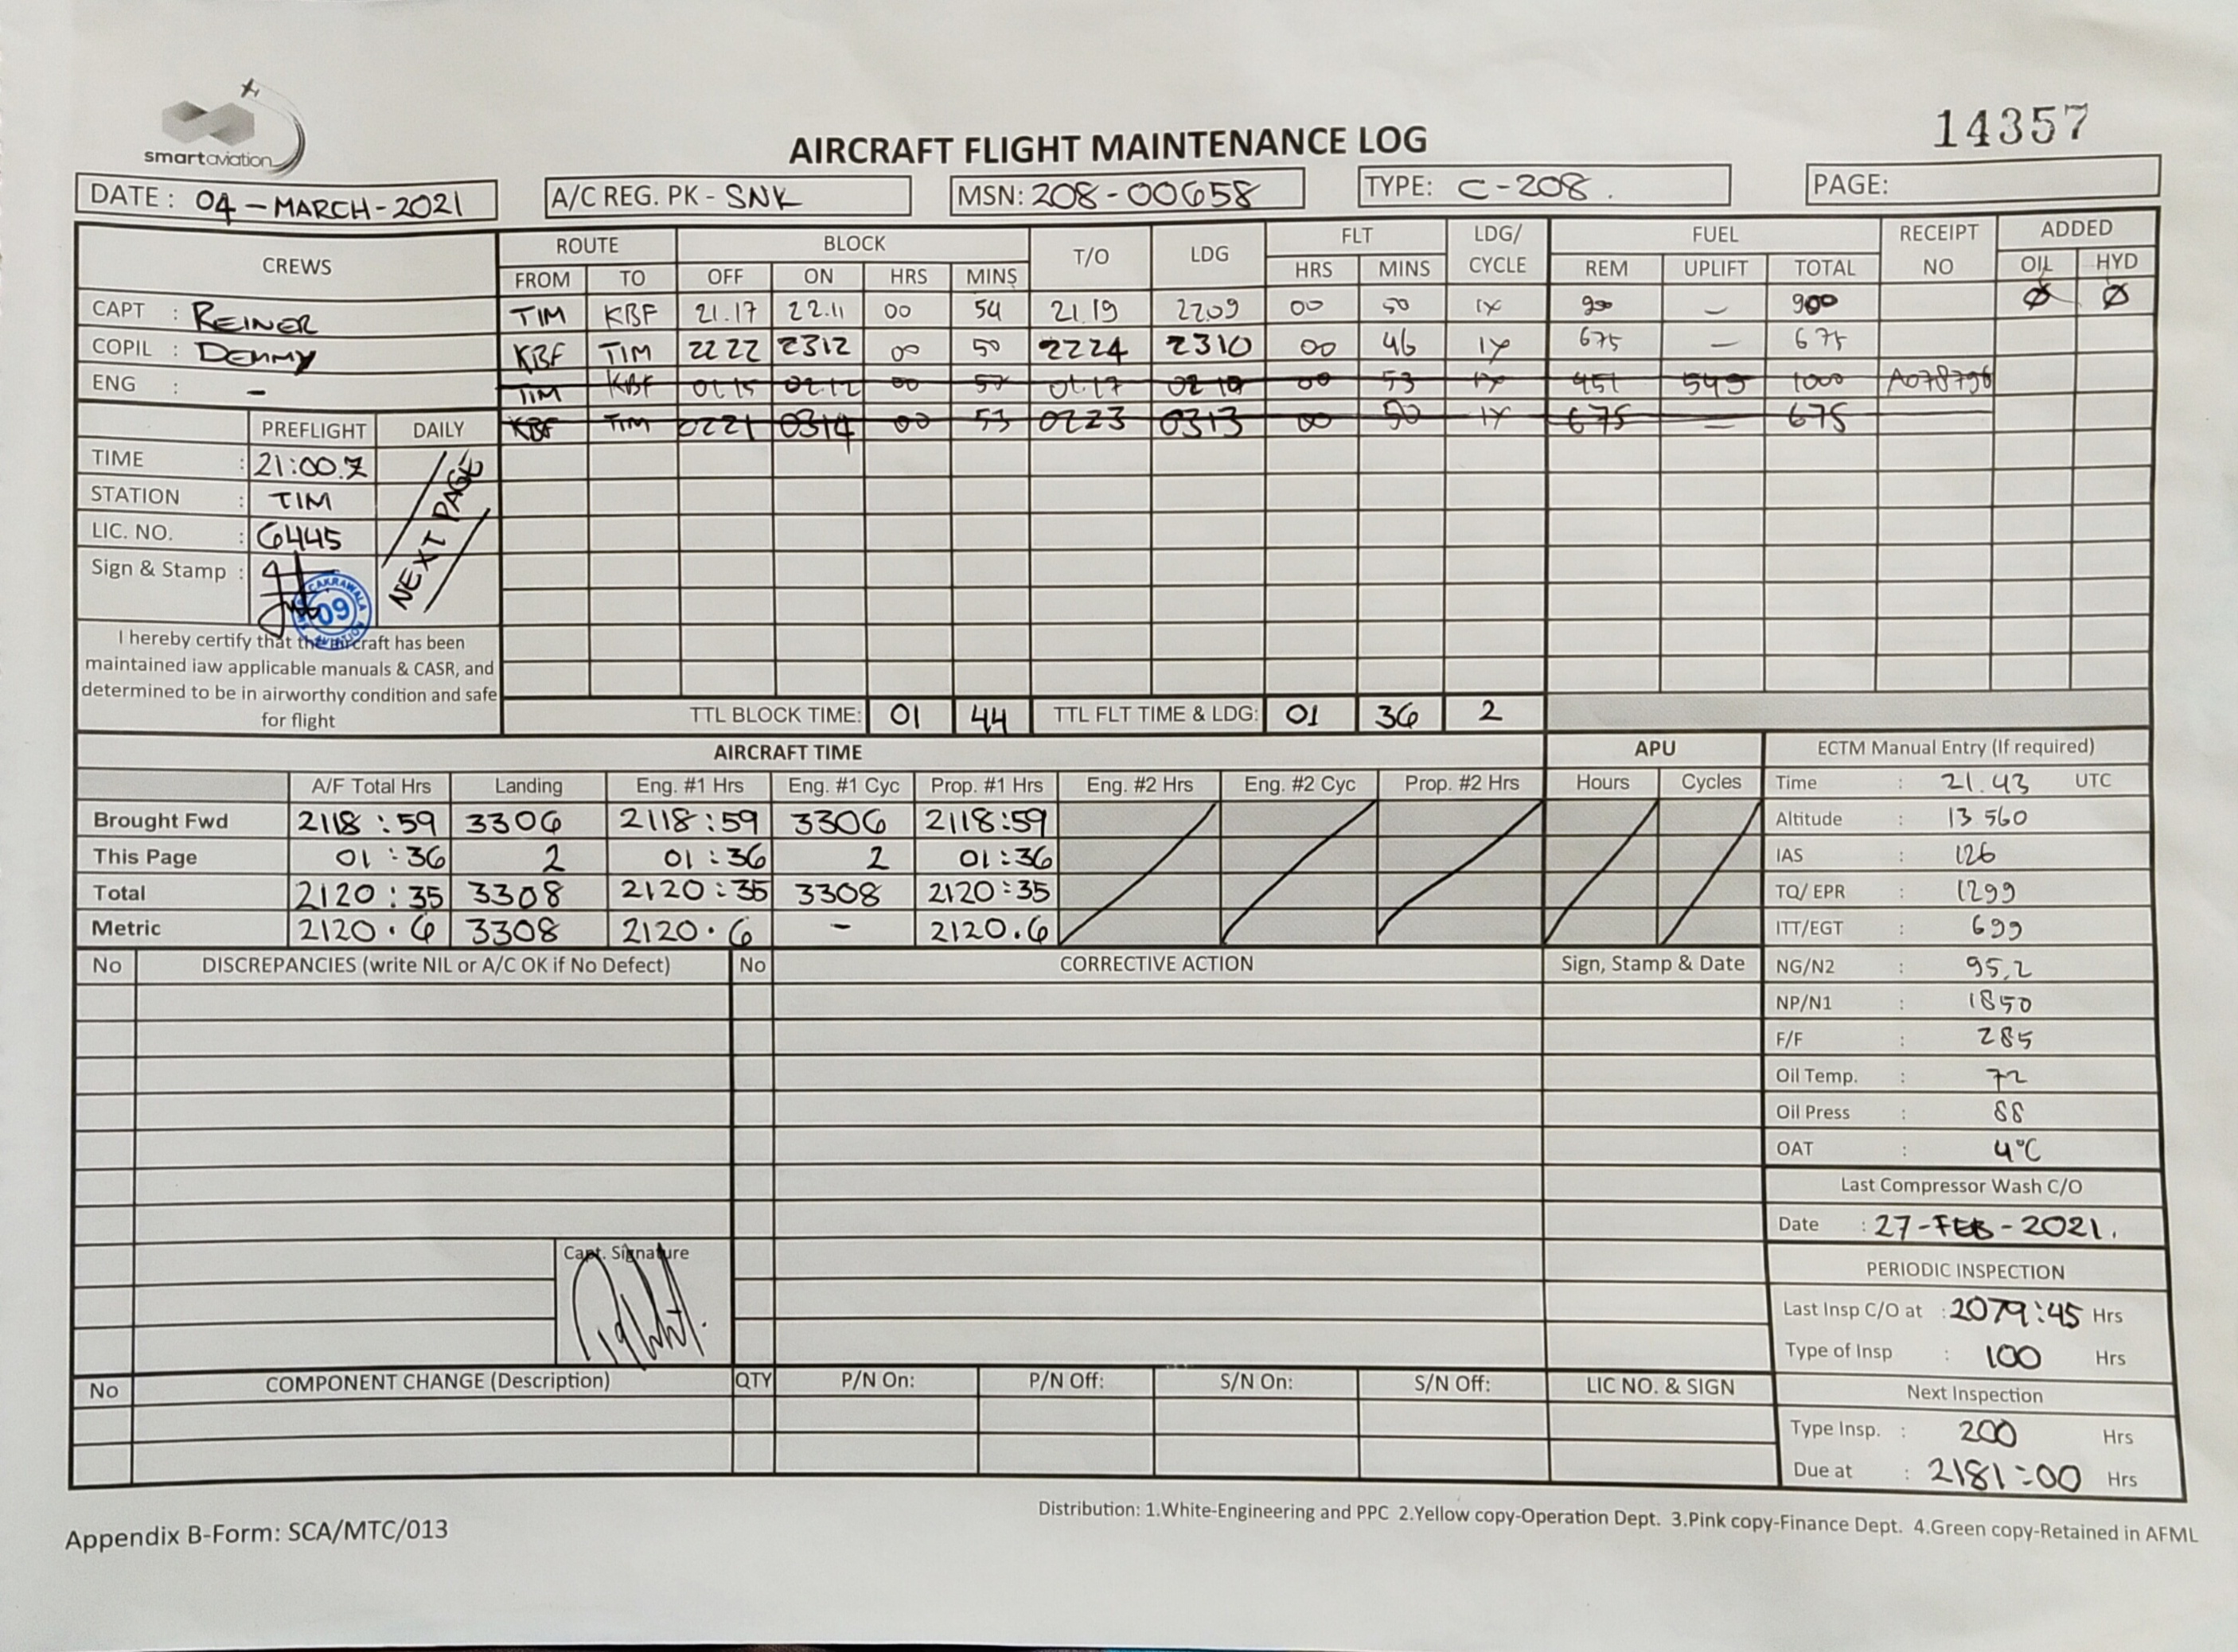 smartaviation
14357
AIRCRAFT FLIGHT MAINTENANCE LOG
DATE : 04 - MARCH - 2021 A/C REG. PK - SNK MSN: 208-00658 TYPE: C-208. PAGE:
CREWS ROUTE BLOCK T/O LDG FLT LDG/ CYCLE FUEL RECEIPT NO ADDED
FROM TO OFF ON HRS MINS HRS MINS REM UPLIFT TOTAL OIL HYD
CAPT : REINER TIM KBF 21.17 22.11 00 54 21.19 2209 00 50 1X 900 – 900 Ø Ø
COPIL : DEMMY KBF TIM 2222 2312 00 50 2224 2310 00 46 1X 675 – 675
ENG : – TIM KBF 01.15 02.12 00 57 01.17 02.10 00 53 1X 451 549 1000 A078796
KBF TIM 0221 0314 00 53 0223 0313 00 50 1X 675 – 675
PREFLIGHT DAILY
TIME : 21:00.Z
STATION : TIM
LIC. NO. : 6445
NEXT PAGE
Sign & Stamp :
CAKRAWALA
09
AVIATION
I hereby certify that the aircraft has been
maintained iaw applicable manuals & CASR, and
determined to be in airworthy condition and safe
for flight
TTL BLOCK TIME: 01 44 TTL FLT TIME & LDG: 01 36 2
AIRCRAFT TIME APU ECTM Manual Entry (If required)
A/F Total Hrs Landing Eng. #1 Hrs Eng. #1 Cyc Prop. #1 Hrs Eng. #2 Hrs Eng. #2 Cyc Prop. #2 Hrs Hours Cycles Time : 21.43 UTC
Brought Fwd 2118:59 3306 2118:59 3306 2118:59 Altitude : 13 560
This Page 01:36 2 01:36 2 01:36 IAS : 126
Total 2120:35 3308 2120:35 3308 2120:35 TQ/ EPR : 1299
Metric 2120.6 3308 2120.6 – 2120.6 ITT/EGT : 699
No DISCREPANCIES (write NIL or A/C OK if No Defect) No CORRECTIVE ACTION Sign, Stamp & Date NG/N2 : 95,2
NP/N1 : 1850
F/F : 285
Oil Temp. : 72
Oil Press : 88
OAT : 4°C
Last Compressor Wash C/O
Date : 27-FEB-2021.
Capt. Signature
PERIODIC INSPECTION
Last Insp C/O at : 2079:45 Hrs
Type of Insp : 100 Hrs
No COMPONENT CHANGE (Description) QTY P/N On: P/N Off: S/N On: S/N Off: LIC NO. & SIGN Next Inspection
Type Insp. : 200 Hrs
Due at : 2181:00 Hrs
Distribution: 1.White-Engineering and PPC 2.Yellow copy-Operation Dept. 3.Pink copy-Finance Dept. 4.Green copy-Retained in AFML
Appendix B-Form: SCA/MTC/013